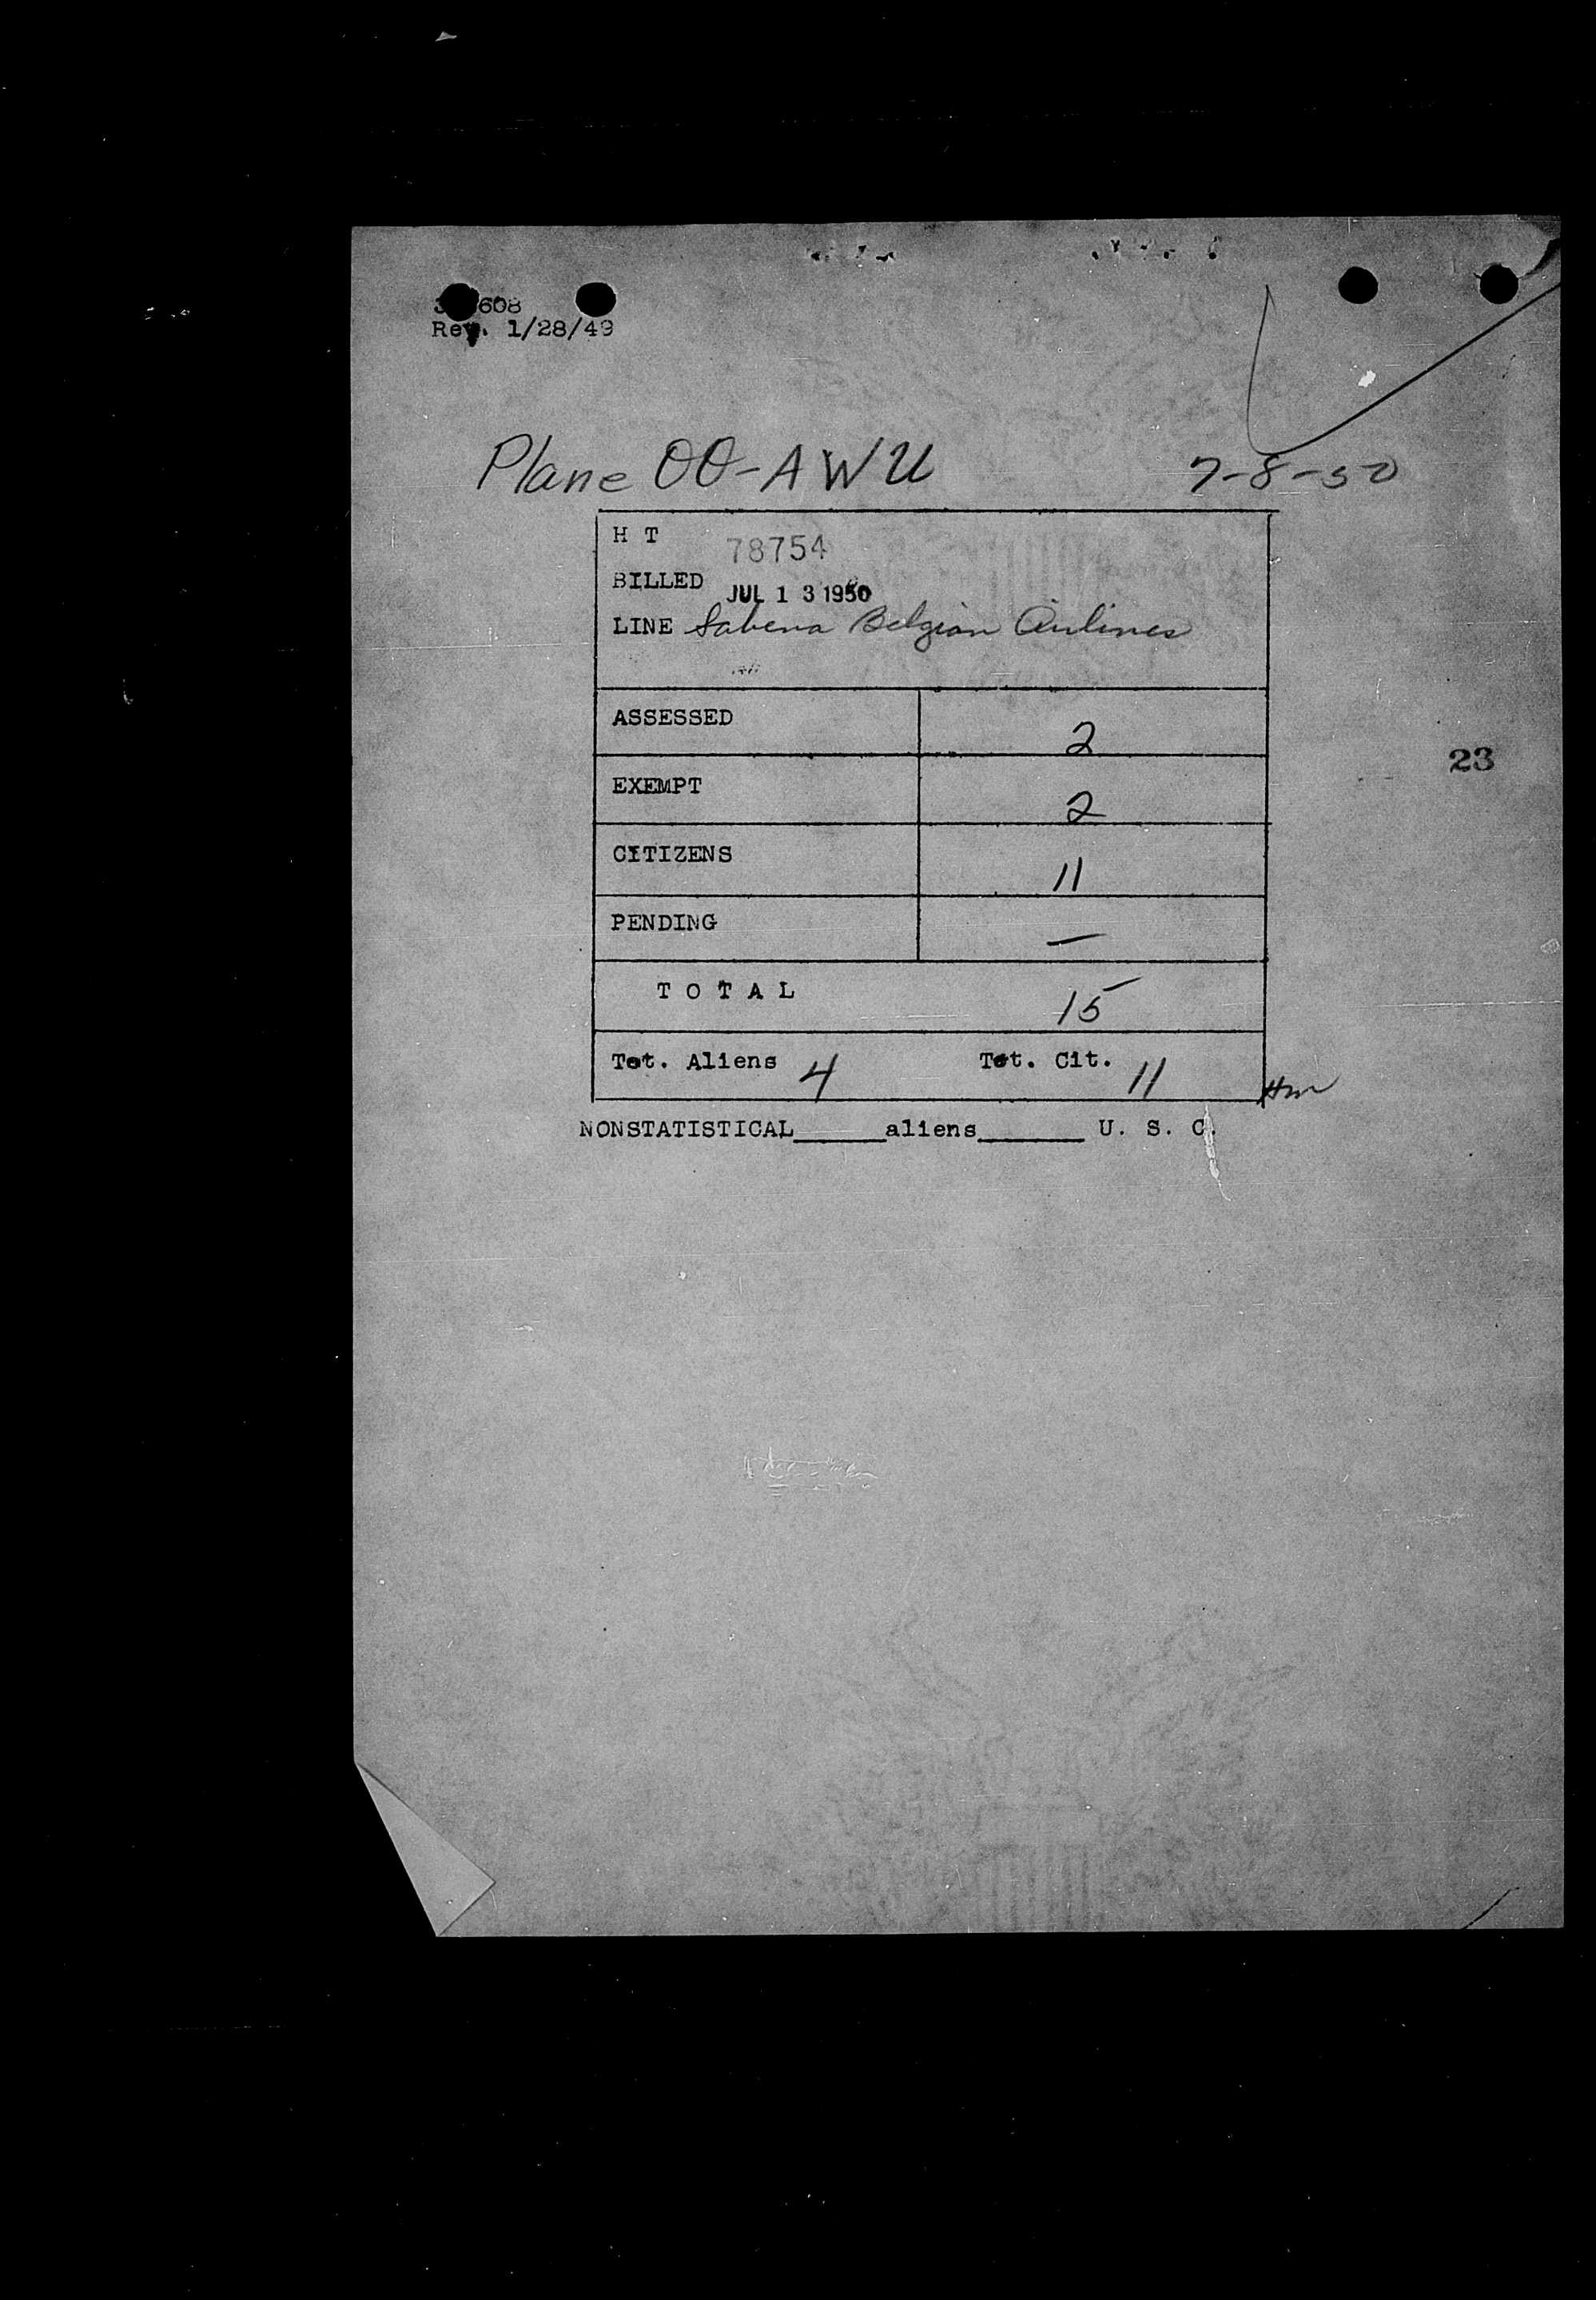 608
Rev. 1/28/49
Plane OO-AWU 7-8-50
H T 78754
BILLED JUL 13 1950
LINE Sabena Belgian Airlines
ASSESSED 2
EXEMPT 2
23
CITIZENS 11
PENDING —
T O T A L 15
Tot. Aliens 4 Tot. Cit. 11
NONSTATISTICAL______aliens_______ U. S. C.